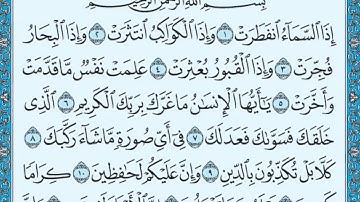 بِسْمِ ٱللَّهِ ٱلرَّحْمَٰنِ ٱلرَّحِيمِ
إِذَا ٱلسَّمَآءُ ٱنفَطَرَتْ ١ وَإِذَا ٱلْكَوَاكِبُ ٱنتَثَرَتْ ٢ وَإِذَا ٱلْبِحَارُ
فُجِّرَتْ ٣ وَإِذَا ٱلْقُبُورُ بُعْثِرَتْ ٤ عَلِمَتْ نَفْسٌ مَّا قَدَّمَتْ
وَأَخَّرَتْ ٥ يَٰٓأَيُّهَا ٱلْإِنسَٰنُ مَا غَرَّكَ بِرَبِّكَ ٱلْكَرِيمِ ٦ ٱلَّذِى
خَلَقَكَ فَسَوَّىٰكَ فَعَدَلَكَ ٧ فِىٓ أَىِّ صُورَةٍ مَّا شَآءَ رَكَّبَكَ ٨
كَلَّا بَلْ تُكَذِّبُونَ بِٱلدِّينِ ٩ وَإِنَّ عَلَيْكُمْ لَحَٰفِظِينَ ١٠ كِرَامًا